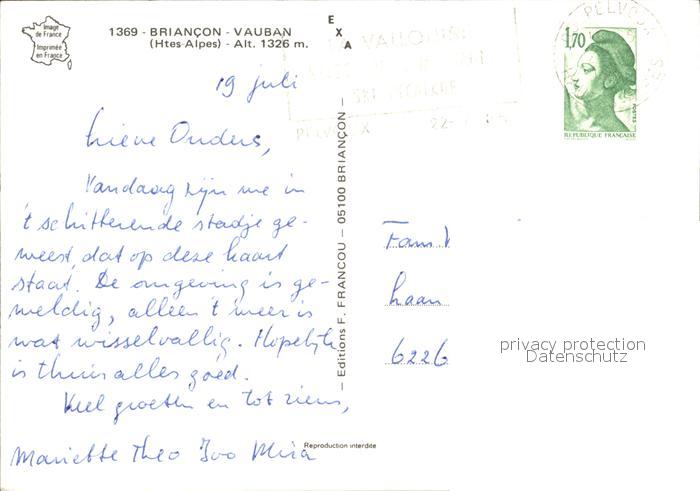 Image
de France
Imprimée
en France
1369 - BRIANÇON - VAUBAN
(Htes-Alpes) - Alt. 1326 m.
EXA
VALLOUISE
SKI ESCALADE
PELVOUX 22-7
PELVOUX
1,70
POSTES
REPUBLIQUE FRANÇAISE
19 juli
Lieve Ouders,
Vandaag zijn we in
't schitterende stadje ge-
weest, dat op deze kaart
staat. De omgeving is ge-
weldig, alleen 't weer is
wat wisselvallig. Hopelijk
is thuis alles goed.
Veel groeten en tot ziens,
Mariette Theo Ivo Mira
— Editions F. FRANCOU — 05100 BRIANÇON —
Reproduction interdite
Fam.
Laan
6226
privacy protection
Datenschutz